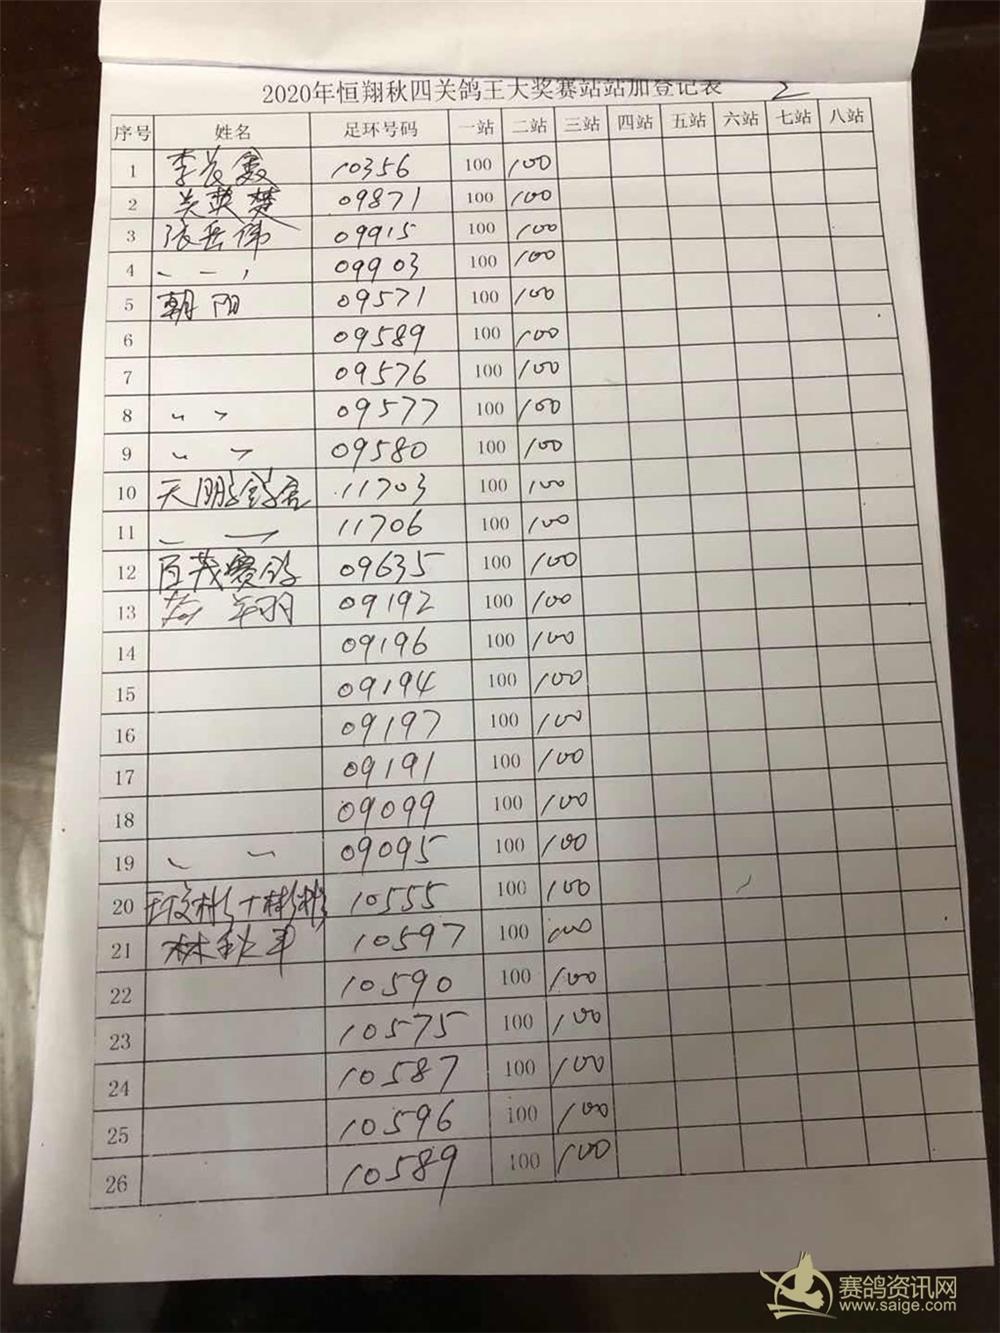 2020年恒翔秋四关鸽王大奖赛站站加登记表 2
序号 姓名 足环号码 一站 二站 三站 四站 五站 六站 七站 八站
1 李发鑫 10356 100 100
2 关英梦 09871 100 100
3 张岳伟 09915 100 100
4 09903 100 100
5 朝阳 09571 100 100
6 09589 100 100
7 09576 100 100
8 09577 100 100
9 09580 100 100
10 天鹏鸽舍 11703 100 100
11 11706 100 100
12 百茂赛鸽 09635 100 100
13 翔 09192 100 100
14 09196 100 100
15 09194 100 100
16 09197 100 100
17 09191 100 100
18 09099 100 100
19 09095 100 100
20 10555 100 100
21 林秋军 10597 100 100
22 10590 100 100
23 10575 100 100
24 10587 100 100
25 10596 100 100
26 10589 100 100
赛鸽资讯网
www.saige.com